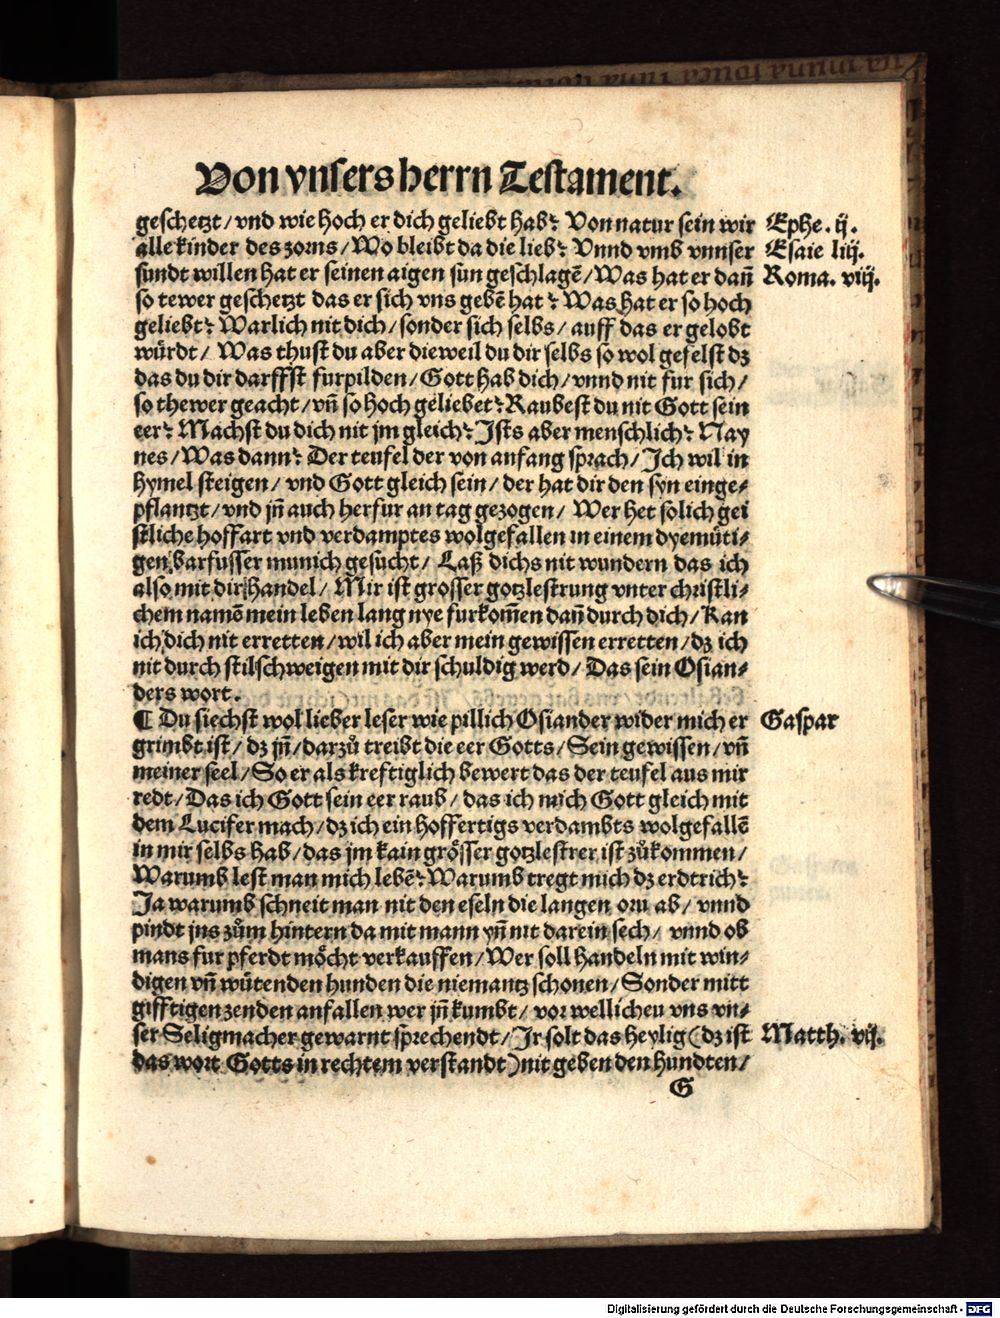 Von vnsers herrn Testament.
geschetzt/ vnd wie hoch er dich geliebt hab? Von natur sein wir
Ephe. ij.
alle kinder des zorns/ Wo bleibt da die lieb? Vnnd vmb vnnser
Esaie liij.
sundt willen hat er seinen aigen sun geschlagē/ Was hat er dañ
Roma. viij.
so tewer geschetzt das er sich vns gebē hat? Was hat er so hoch
geliebt? Warlich nit dich/ sonder sich selbs/ auff das er gelobt
würdt/ Was thust du aber dieweil du dir selbs so wol gefelst dz
das du dir darffst furpilden/ Gott hab dich/ vnnd nit fur sich/
so thewer geacht/ vñ so hoch geliebet? Raubest du nit Gott sein
eer? Machst du dich nit jm gleich? Ists aber menschlich? Nay
nes/ Was dann? Der teufel der von anfang sprach/ Ich wil in
hymel steigen/ vnd Gott gleich sein/ der hat dir den syn einge-
pflantzt/ vnd jñ auch herfur an tag gezogen/ Wer het solich gei
stliche hoffart vnd verdamptes wolgefallen in einem dyemüti-
gen barfusser munich gesücht/ Laß dichs nit wundern das ich
also mit dir handel/ Mir ist grosser gotzlestrung vnter christli-
chem namē mein leben lang nye furkom̄en dañ durch dich/ Kan
ich dich nit erretten/ wil ich aber mein gewissen erretten/ dz ich
nit durch stilschweigen mit dir schuldig werd/ Das sein Osian-
ders wort.
¶ Du siechst wol lieber leser wie pillich Osiander wider mich er
Gaspar
grimbt ist/ dz jñ/ darzů treibt die eer Gotts/ Sein gewissen/ vñ
meiner seel/ So er als kreftiglich bewert das der teufel aus mir
redt/ Das ich Gott sein eer raub/ das ich mich Gott gleich mit
dem Lucifer mach/ dz ich ein hoffertigs verdambts wolgefallē
in mir selbs hab/ das jm kain grösser gotzlestrer ist zůkommen/
Warumb lest man mich lebē? Warumb tregt mich dz erdtrich?
Ja warumb schneit man nit den eseln die langen orn ab/ vnnd
pindt jns zům hintern da mit mann yñ nit darein sech/ vnnd ob
mans fur pferdt möcht verkauffen/ Wer soll handeln mit win-
digen vñ wütenden hunden die niemantz schonen/ Sonder mitt
gifftigen zenden anfallen wer jñ kumbt/ vor wellichen vns vn-
ser Seligmacher gewarnt sprechendt/ Ir solt das heylig (dz ist
Matth. vij.
das wort Gotts in rechtem verstandt) nit geben den hundten/
G
Digitalisierung gefördert durch die Deutsche Forschungsgemeinschaft - DFG